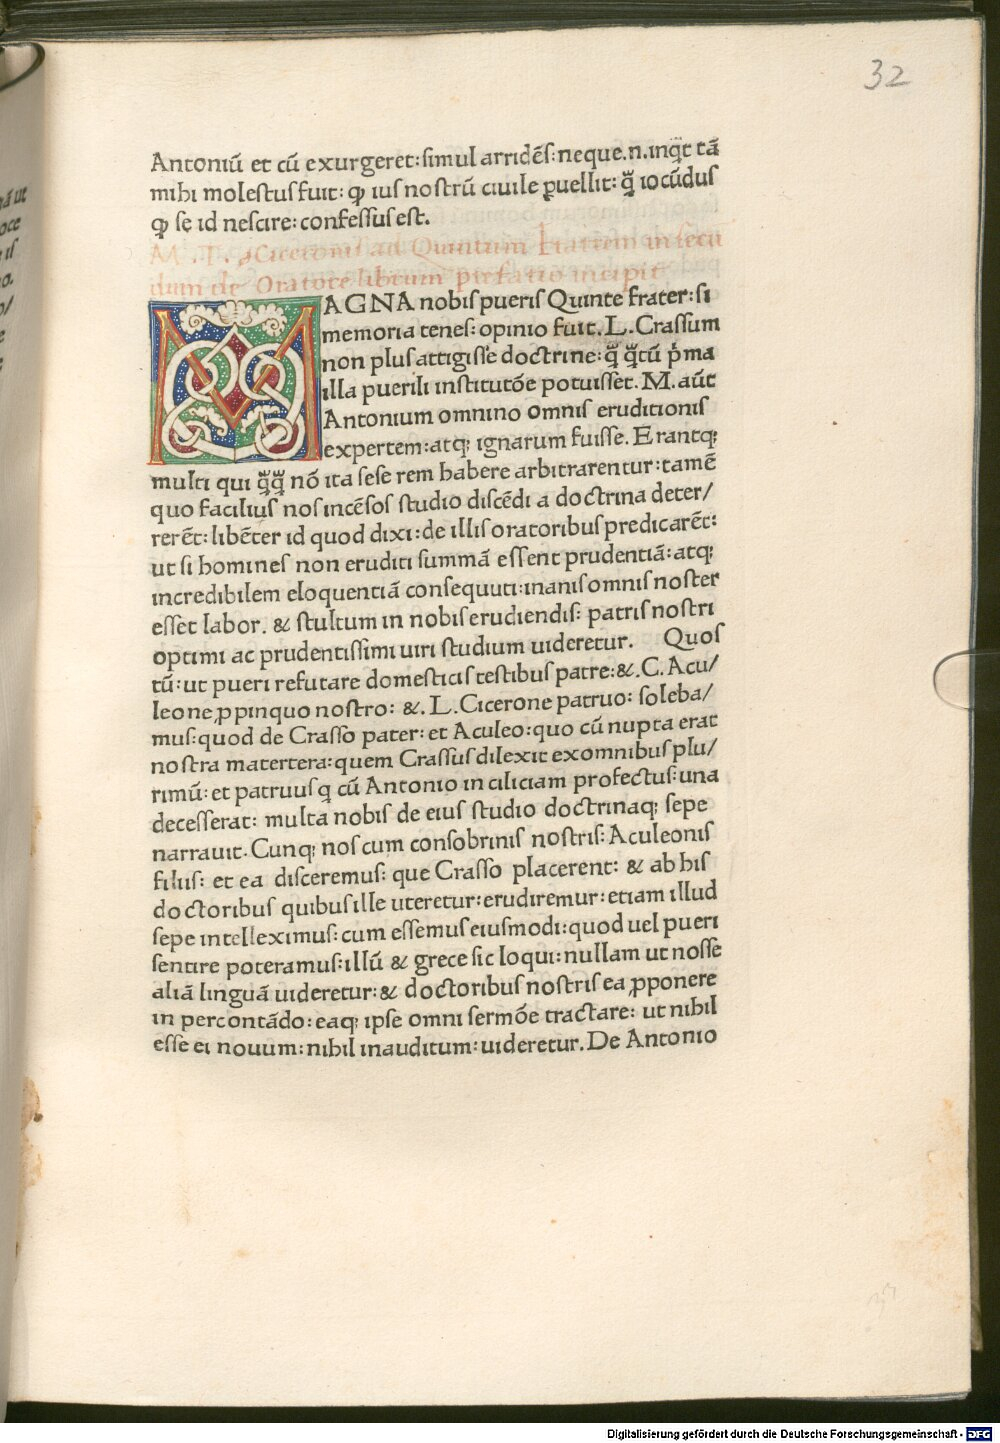 32
Antoniū et cū exurgeret:simul arridēs:neque.n.inqͥt tā
mihi molestus fuit: ꝙ ius nostrū ciuile ꝑuellit: ꝗ̃ iocūdus
ꝙ sę id nescire: confessus est.
M. T. Ciceronis ad Quintum fratrem in secū
dum de Oratore librum prefatio incipit
MAGNA nobis pueris Quinte frater:si
memoria tenes: opinio fuit. L. Crassum
non plus attigisse doctrine: ꝗ̃ ꝗ̃tū pͥma
illa puerili institutōe potuisset. M. aūt
Antonium omnino omnis eruditionis
expertem:atqꝫ ignarum fuisse. Erantqꝫ
multi qui ꝗ̃ꝗ̃ nō ita sese rem habere arbitrarentur:tamē
quo facilius nos incēsos studio discēdi a doctrina deter/
rerēt: libēter id quod dixi:de illis oratoribus predicarēt:
ut si homines non eruditi summā essent prudentiā:atqꝫ
incredibilem eloquentiā consequuti:inanis omnis noster
esset labor. & stultum in nobis erudiendis: patris nostri
optimi ac prudentissimi uiri studium uideretur. Quos
tū:ut pueri refutare domesticis testibus patre:&.C. Acu/
leone ꝓpinquo nostro: &. L. Cicerone patruo: soleba/
mus:quod de Crasso pater: et Aculeo:quo cū nupta erat
nostra matertera:quem Crassus dilexit ex omnibus plu/
rimū: et patruus q cū Antonio in ciliciam profectus:una
decesserat: multa nobis de eius studio doctrinaqꝫ sepe
narrauit. Cunqꝫ nos cum consobrinis nostris: Aculeonis
filiis: et ea disceremus: que Crasso placerent: & ab his
doctoribus quibus ille uteretur:erudiremur:etiam illud
sepe intelleximus: cum essemus eiusmodi:quod uel pueri
sentire poteramus:illū & grece sic loqui:nullam ut nosse
aliā linguā uideretur:& doctoribus nostris ea ꝓponere
in percontādo: eaqꝫ ipse omni sermōe tractare: ut nihil
esse ei nouum:nihil inauditum:uideretur. De Antonio
Digitalisierung gefördert durch die Deutsche Forschungsgemeinschaft - DFG